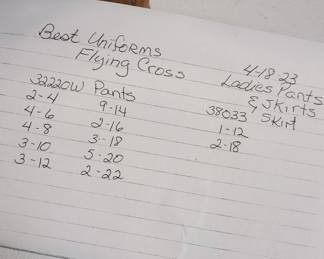 Best Uniforms
Flying Cross
4-18-23
Ladies Pants
& Skirts
32220W Pants
2-4
4-6
4-8
3-10
3-12
9-14
2-16
3-18
5-20
2-22
38033 Skirt
1-12
2-18